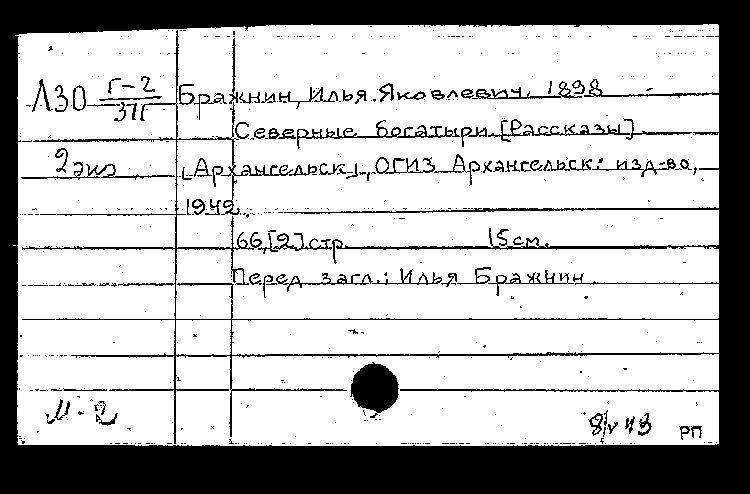 Л30 Г-2 Бражнин, Илья Яковлевич. 1898
37г
Северные богатыри [Рассказы]
2 экз [Архангельск], ОГИЗ Архангельск: изд-во,
1942.
66,[2] стр. 15 см.
Перед загл.: Илья Бражнин.
М-2
8/V 43 РП